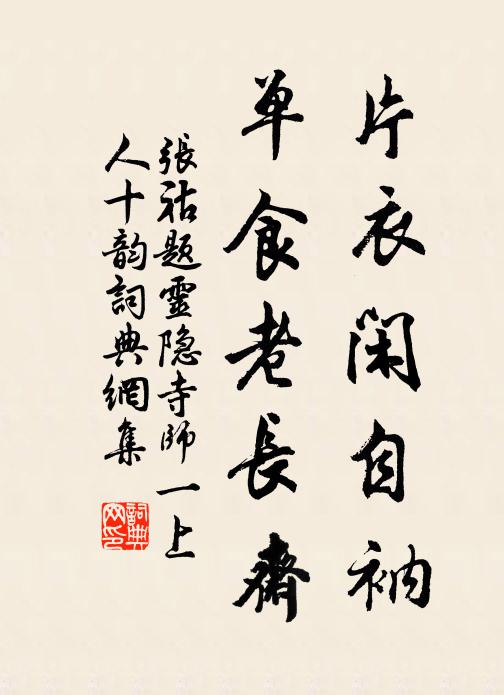 片衣閑自衲
单食老長齋
張祜題靈隐寺師一上
人十韵詞典網集
詞典網印